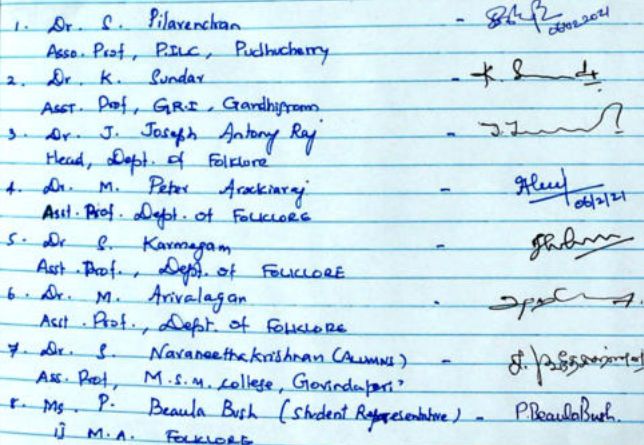 1. Dr. S. Pilavenchan -
06/02/2021
Asso. Prof, P.ILC, Pudhucherry
2. Dr. K. Sundar - K. S
Asst. Prof, G.R.I, Gandhigram
3. Dr. J. Joseph Antony Raj -
Head, Dept. of Folklore
4. Dr. M. Peter Arockiaraj -
06/2/21
Asst. Prof. Dept. of FOLKLORE
5. Dr S. Karmegam -
Asst. Prof., Dept. of FOLKLORE
6. Dr. M. Arivalagan -
Asst. Prof., Dept. of FOLKLORE
7. Dr. S. Navaneethakrishnan (ALUMNS) -
Ass. Prof, M.S.M. college,
8. Ms. P. Beaula Bush (student Representative) - P.BeaulaBush.
II M.A. FOLKLORE